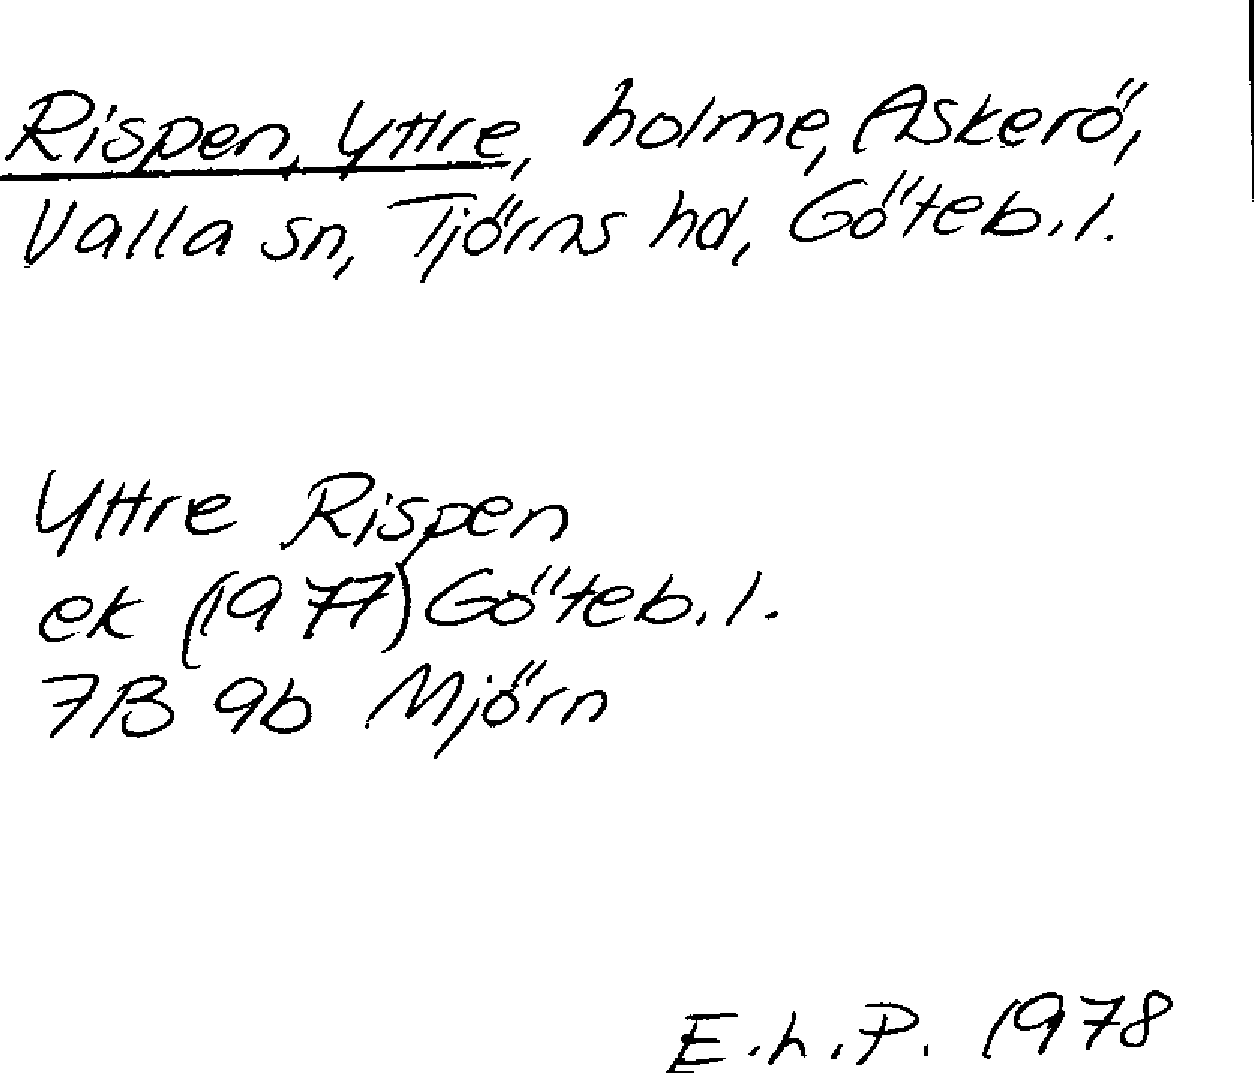 Rispen, Yttre, holme, Askerö,
Valla sn, Tjörns hd, Göteb.l.
Yttre Rispen
ek (1977) Göteb.l.
7B 9b Mjörn
E.h.P. 1978